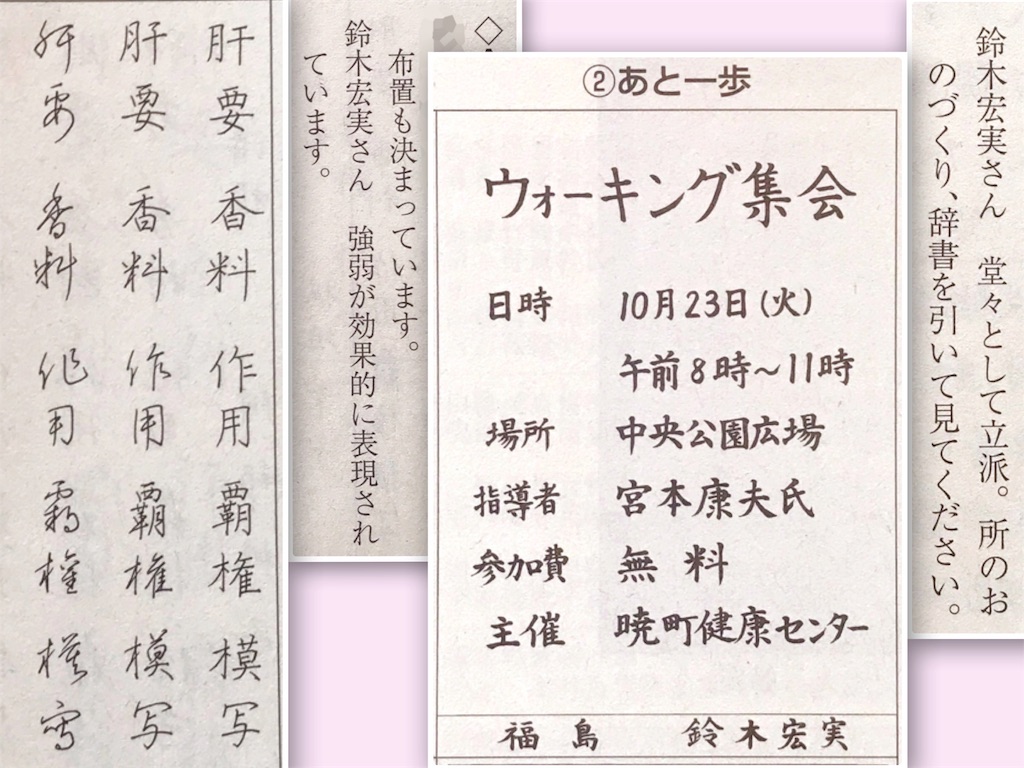 鈴木宏実さん　堂々として立派。所のお
のづくり、辞書を引いて見てください。
②あと一歩
ウォーキング集会
日時　10月23日(火)
午前8時～11時
場所　中央公園広場
指導者　宮本康夫氏
参加費　無料
主催　暁町健康センター
福島　鈴木宏実
◇
布置も決まっています。
鈴木宏実さん　強弱が効果的に表現され
ています。
肝要　香料　作用　覇権　模写
肝要　香料　作用　覇権　模写
肝要　香料　作用　覇権　模写